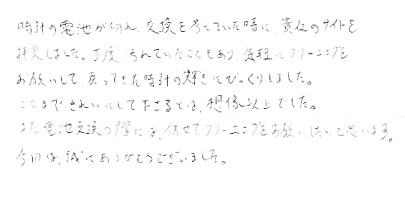 時計の電池がきれ、交換を考えていた時に、貴社のサイトを
拝見しました。丁度、汚れていたこともあり、修理にクリーニングを
お願いして、戻ってきた時計の輝きにびっくりしました。
ここまできれいにして下さるとは、想像以上でした。
また電池交換の際には、併せてクリーニングをお願いしたいと思います。
今回は、誠にありがとうございました。